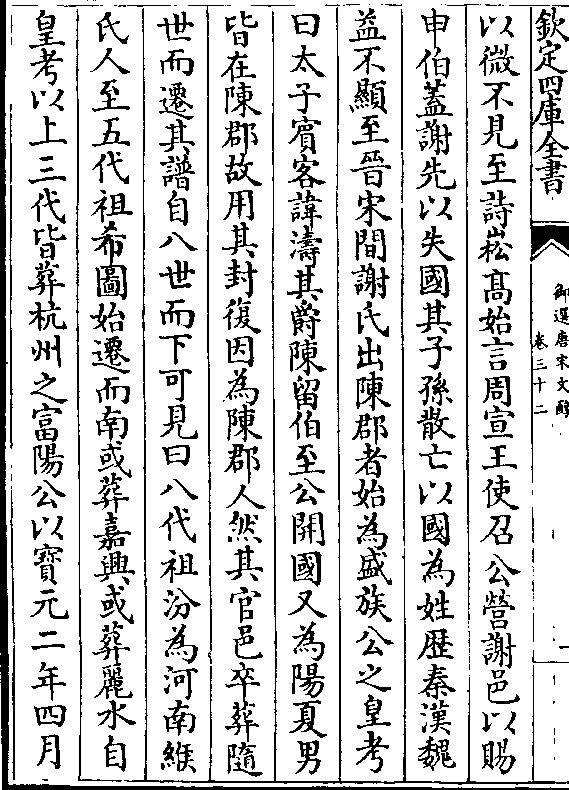 欽定四庫全書
御選唐宋文醇
卷三十二
以微不見至詩崧高始言周宣王使召公營謝邑以賜
申伯蓋謝先以失國其子孫散亡以國為姓歴秦漢魏
益不顯至晉宋間謝氏出陳郡者始為盛族公之皇考
曰太子賓客諱濤其爵陳留伯至公開國又為陽夏男
皆在陳郡故用其封復因為陳郡人然其官邑卒葬隨
世而遷其譜自八世而下可見曰八代祖汾為河南緱
氏人至五代祖希圖始遷而南或葬嘉興或葬麗水自
皇考以上三代皆葬杭州之富陽公以寶元二年四月